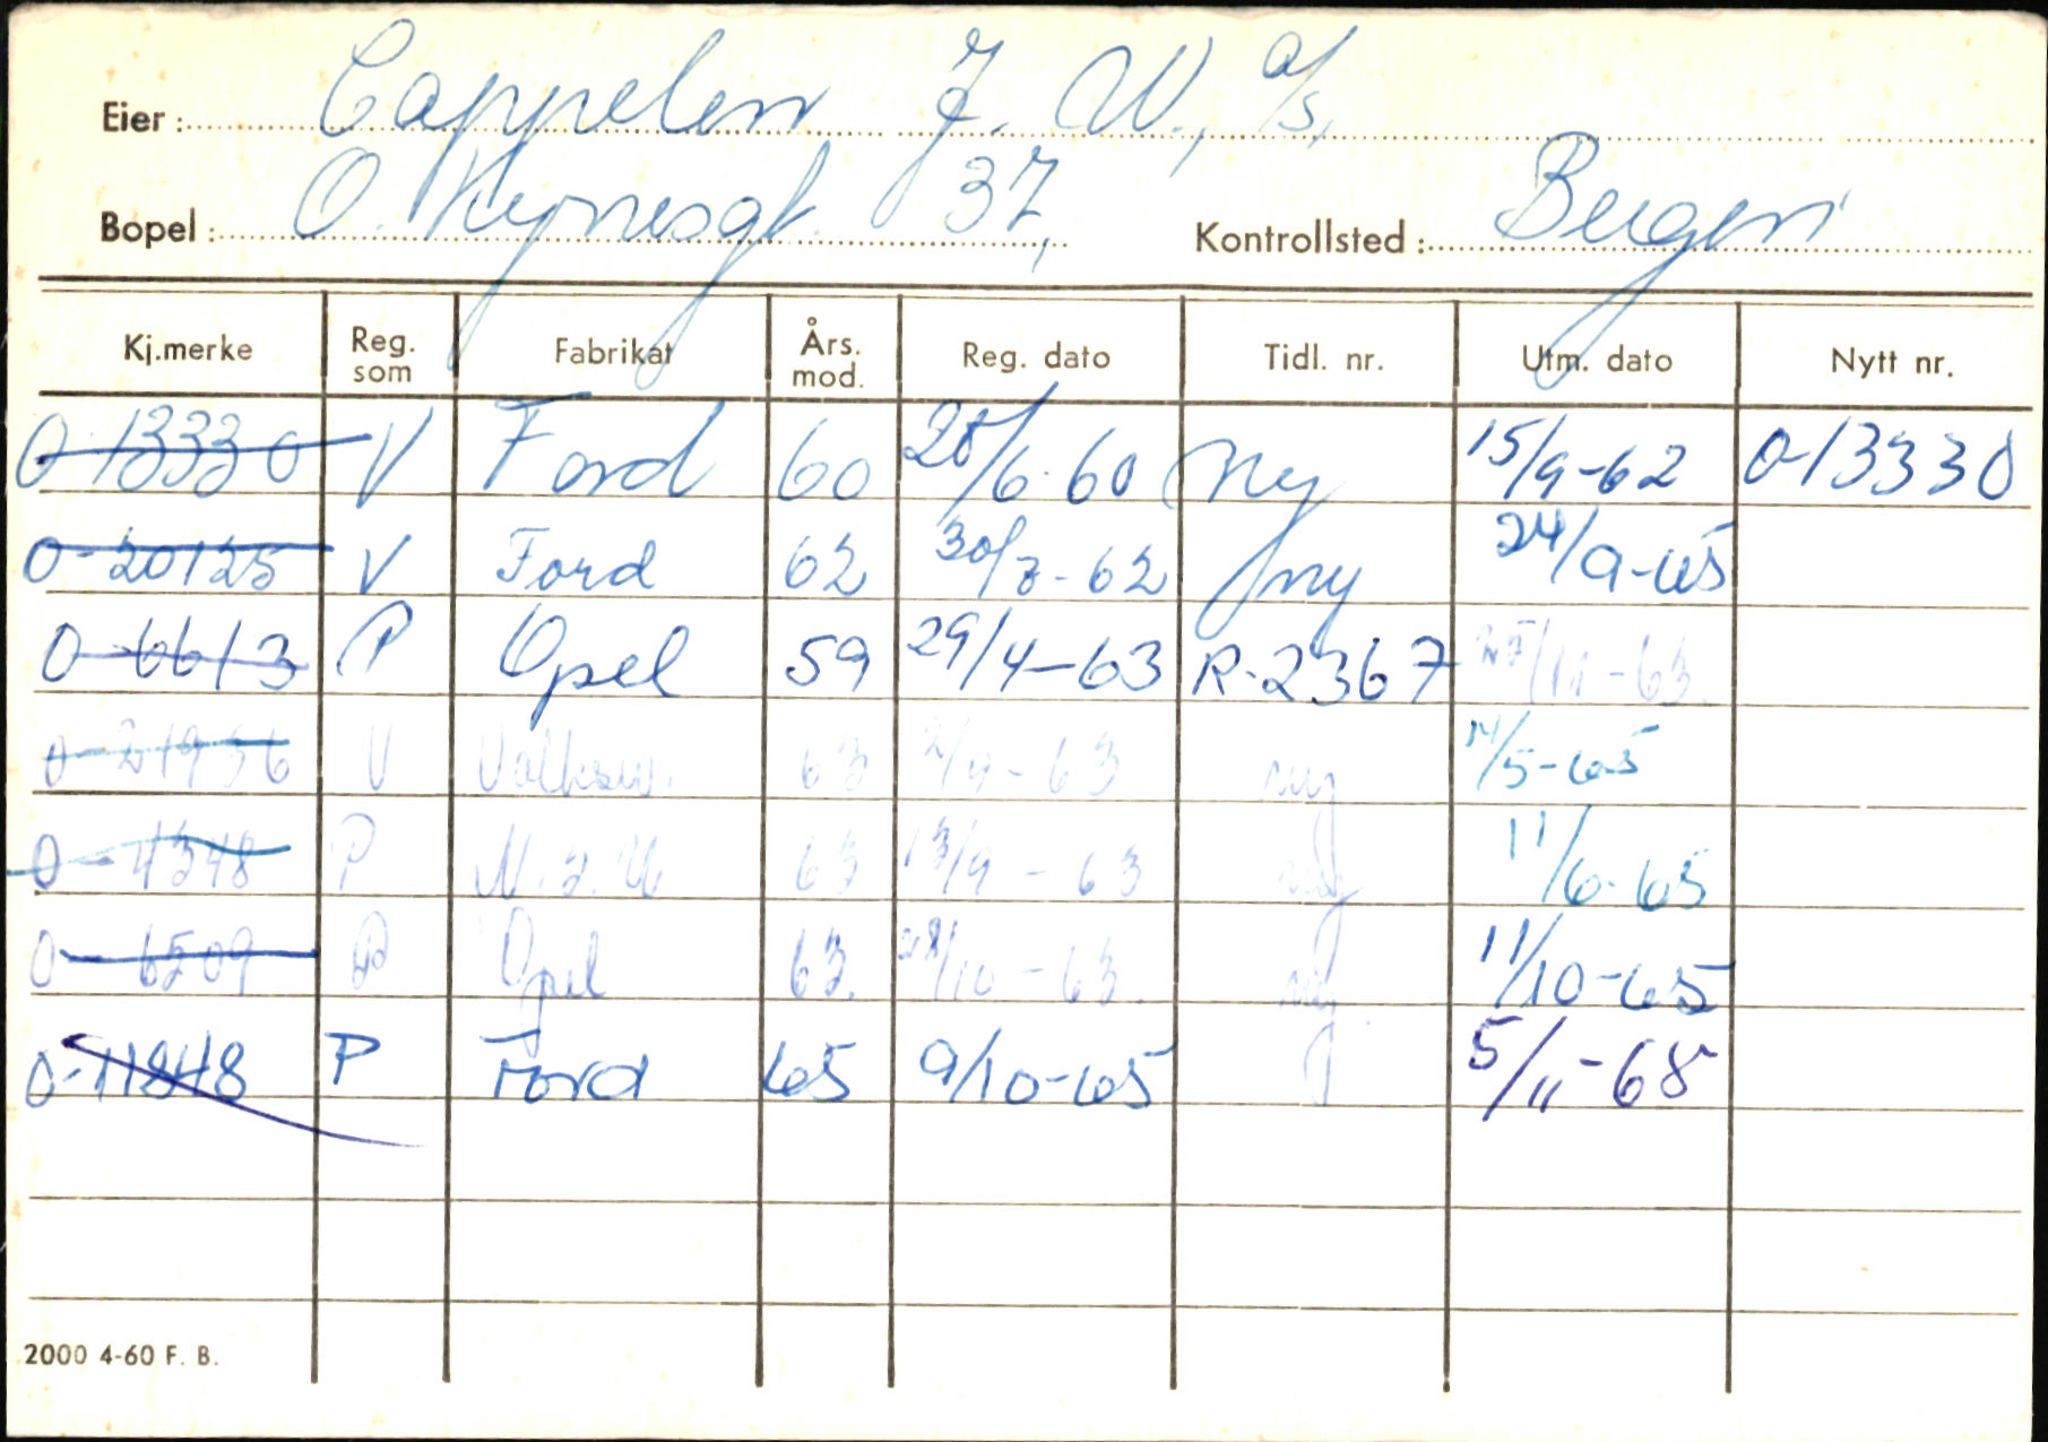 Eier: Cappelen J. W., a/s,
Bopel: 37, Kontrollsted: Bergen
Kj.merke Reg. som Fabrikat Års. mod. Reg. dato Tidl. nr. Utm. dato Nytt nr.
O-13330 V Ford 60 28/6-60 ny 15/9-62 O-13330
O-20125 V Ford 62 30/7-62 ny 24/9-65
O-6613 P Opel 59 29/4-63 R-2367 25/11-63.
O-21956 V Volksw. 63 2/9-63 ny 14/5-65
O-4348 P N.S.U 63 13/9-63 ny 11/6-65
O-6509 P Opel 63. 28/10-63. ny 11/10-65
O-11848 P Ford 65 9/10-65 5/11-68
2000 4-60 F. B.